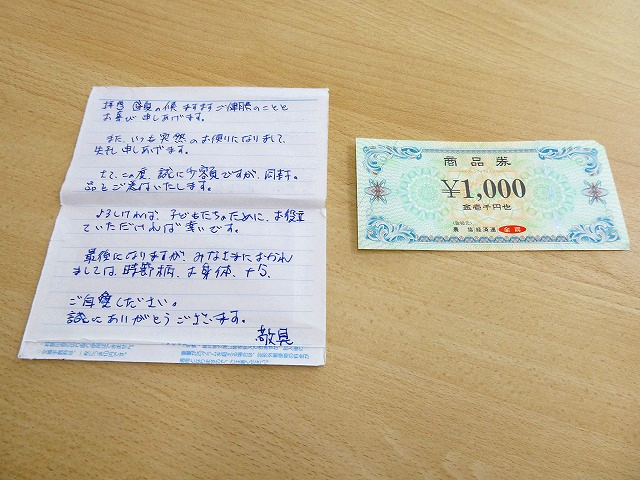 拝啓 の候 ますますご健勝のことと
お喜び申しあげます。
また、いつも突然のお便りになりまして、
失礼申しあげます。
さて、この度、誠に少額ですが、同封の
品とご送付いたします。
よろしければ、子どもたちのために、お役立
ていただければ幸いです。
最後になりますが、みなさまにおかれ
ましては、時節柄、お身体、十分、
ご自愛ください。
誠にありがとうございます。
敬具
商品券
¥1,000
金壱千円也
農協経済連 全農